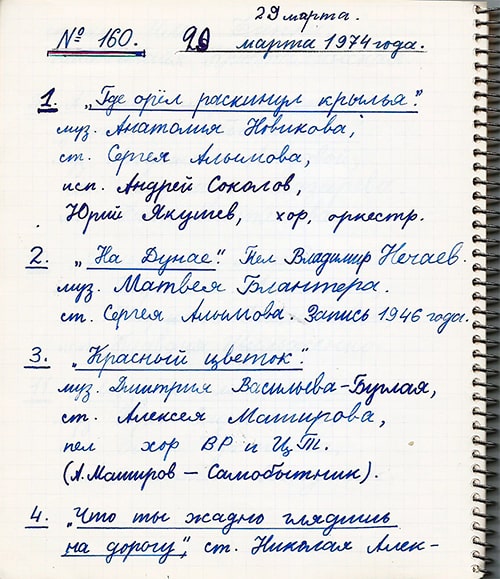 29 марта.
№ 160. 20 марта 1974 года.
1. „Где орёл раскинул крылья".
муз. Анатолия Новикова,
ст. Сергея Алымова,
исп. Андрей Соколов,
Юрий Якушев, хор, оркестр.
2. „На Дунае". Пел Владимир Нечаев.
муз. Матвея Блантера.
ст. Сергея Алымова. Запись 1946 года.
3. „Красный цветок"
муз. Дмитрия Васильева-Буглая,
ст. Алексея Маширова,
пел хор ВР и ЦТ.
(А. Маширов — Самобытник).
4. „Что ты жадно глядишь
на дорогу", ст. Николая Алек-